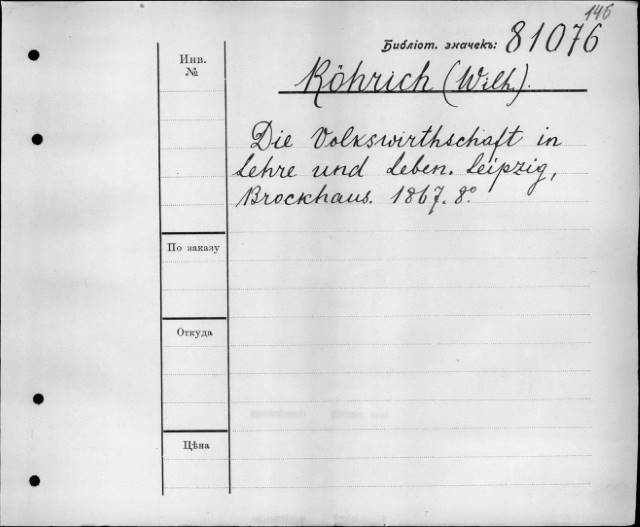 146
Библіот. значекъ: 81076
Инв.
№
Röhrich (Wilh.).
Die Volkswirthschaft in
Lehre und Leben. Leipzig,
Brockhaus. 1867. 8º
По заказу
Откуда
Цѣна